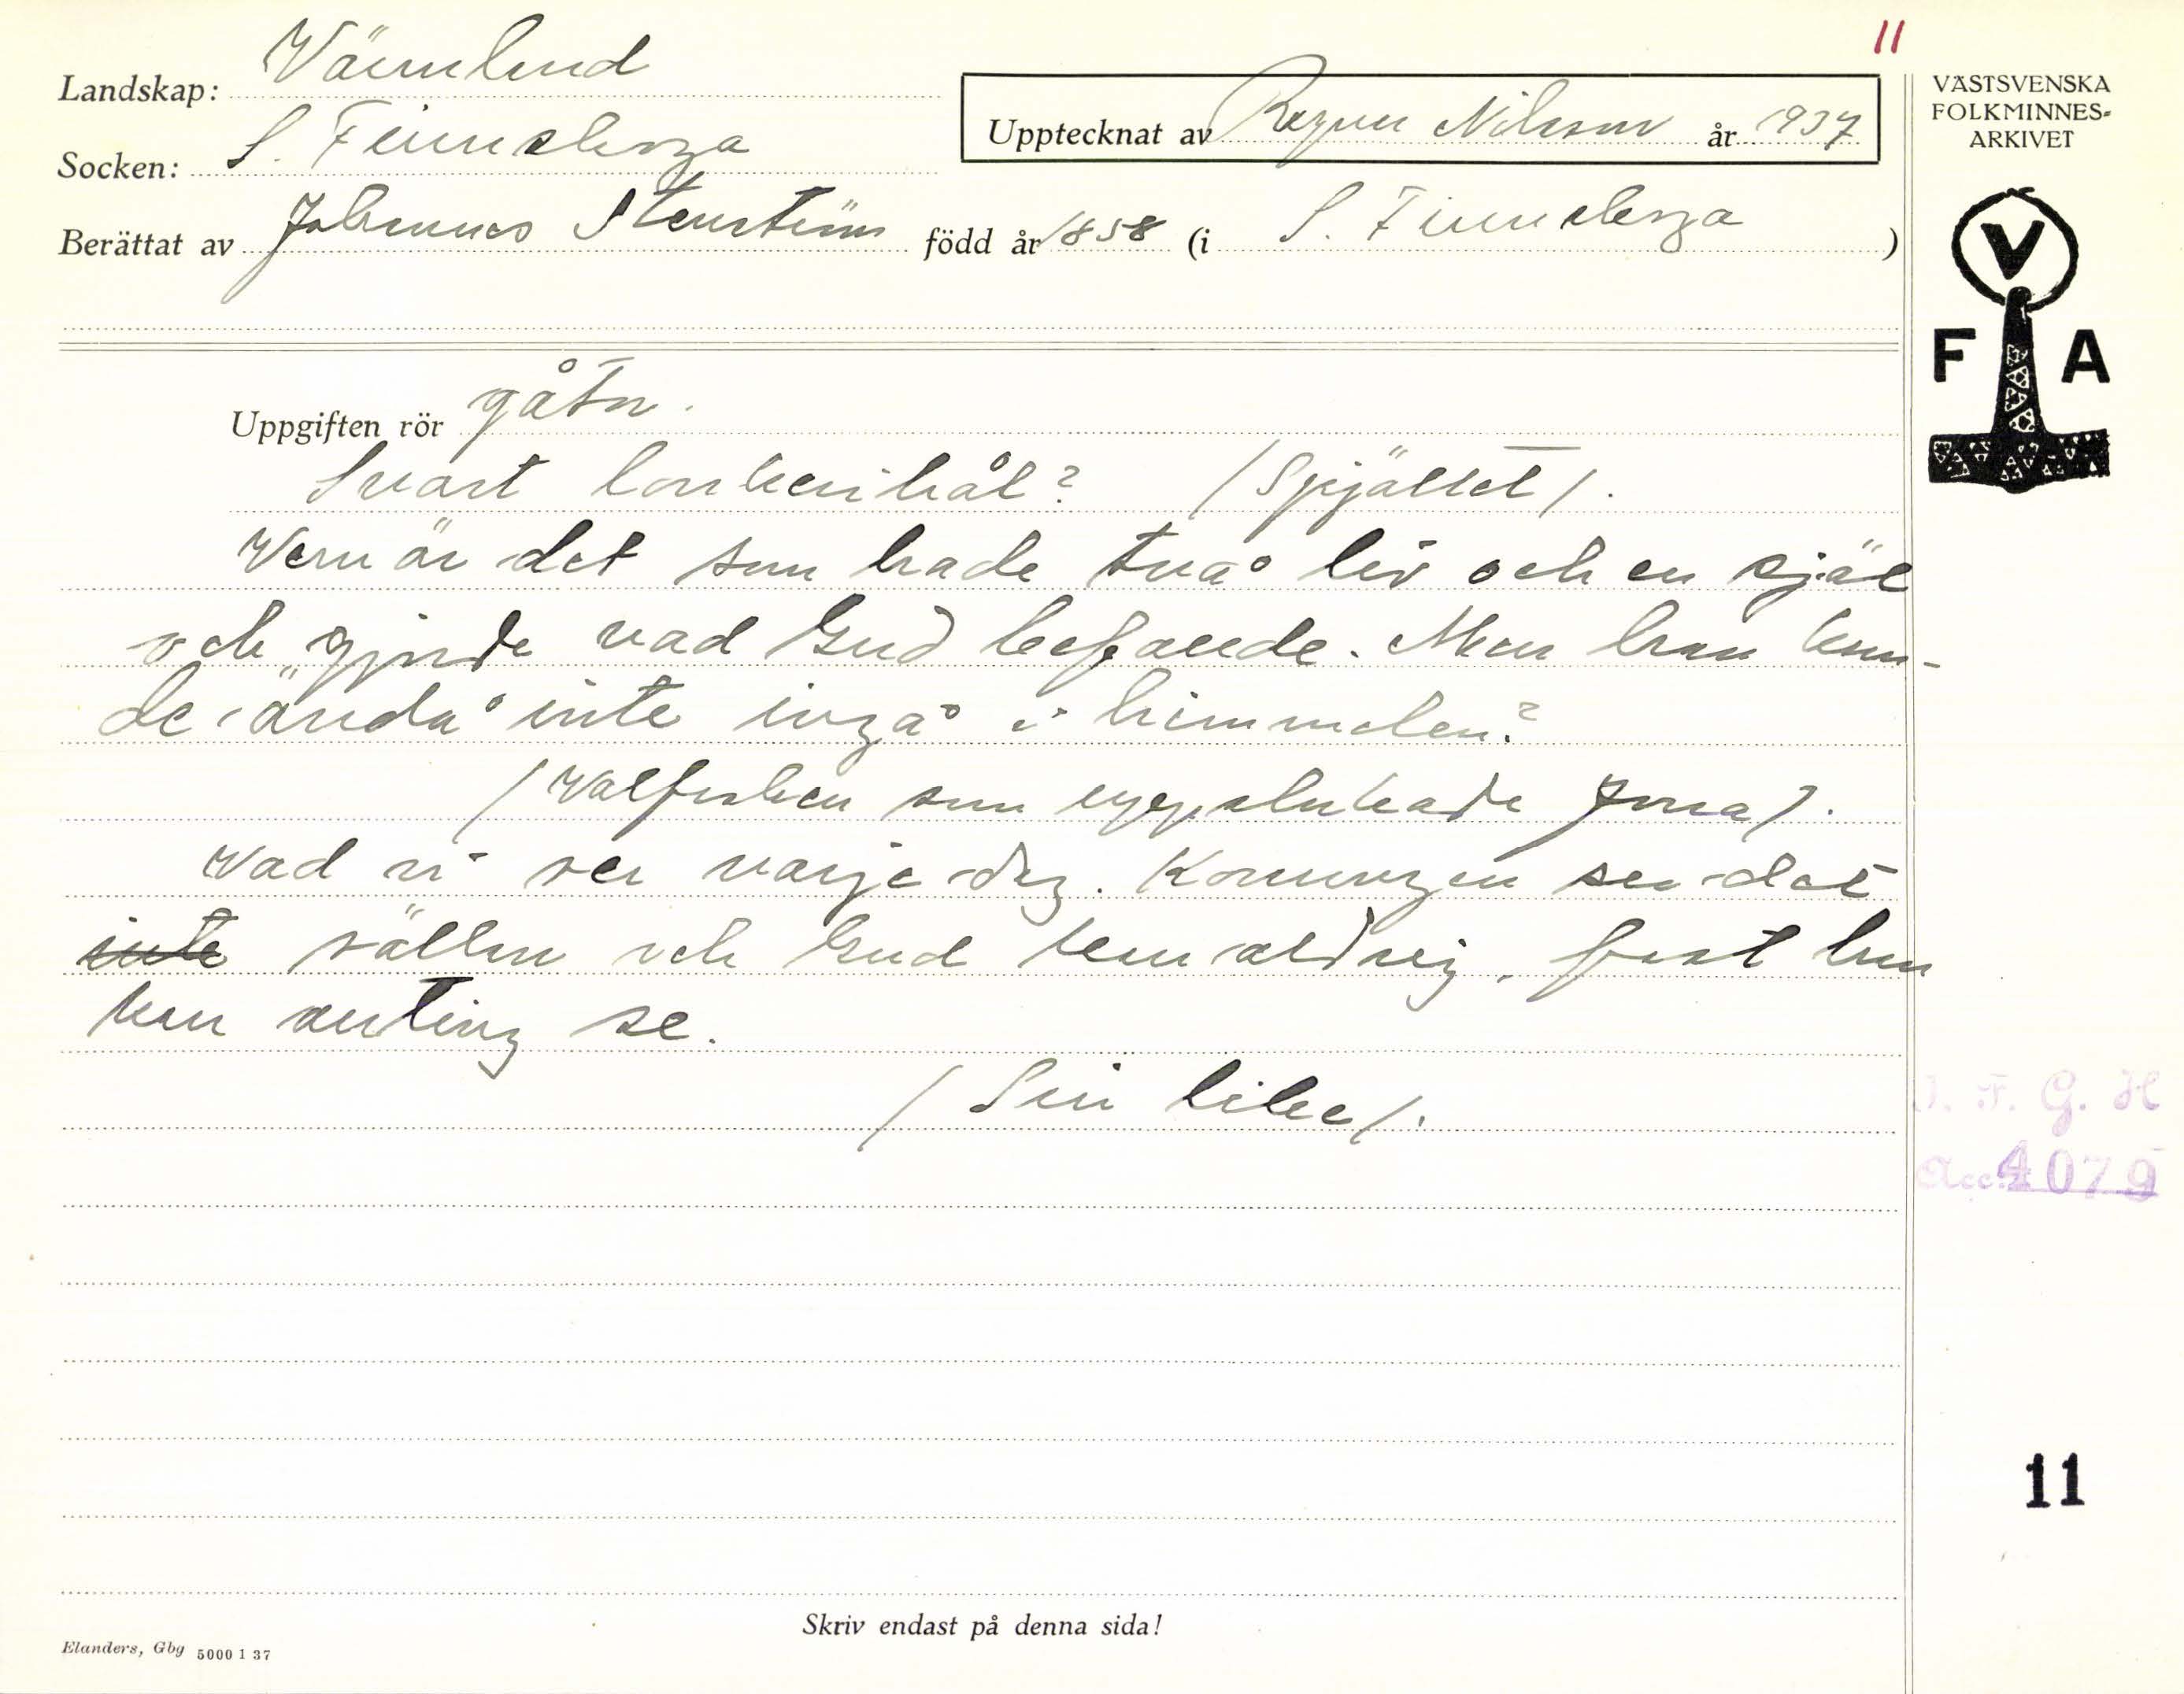 11
Landskap: Värmland
Socken: S. Finnskoga
Upptecknat av Ragnar Nilsson år 1937
Berättat av Johannes Stenström född år 1858 (i S. Finnskoga )
VÄSTSVENSKA
FOLKMINNES-
ARKIVET
V
F A
Uppgiften rör gåtor.
Svart i hål? (Spjället).
Vem är det som hade två liv och en själ
och gjorde vad Gud befallde. Men han kun-
de ändå inte ingå i himmelen?
(Valfisken som uppslukade Jona).
Vad vi ser varje dag. Konungen ser det
inte sällan och Gud kan aldrig, fast han
kan allting se.
(Sin like).
V. F. G. H
Acc. 4079
11
Skriv endast på denna sida!
Elanders, Gbg 5000 1 37